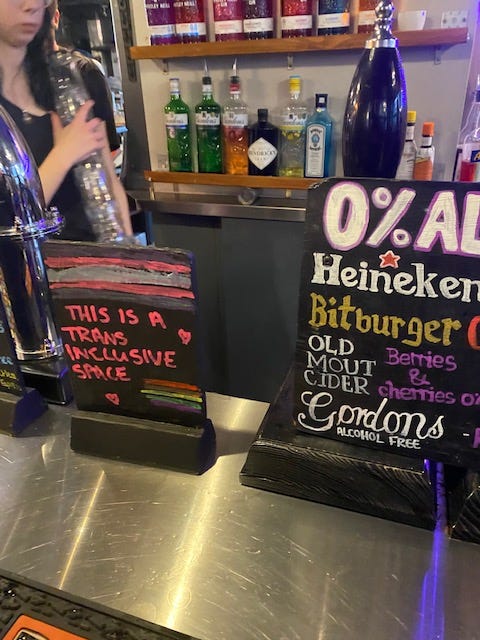 WHITLEY NEILL
HENDRICK'S
THIS IS A
TRANS
INCLUSIVE
SPACE
0% AL
Heineken
Bitburger
OLD
MOUT
CIDER
Berries
&
cherries 0%
Gordons
ALCOHOL FREE